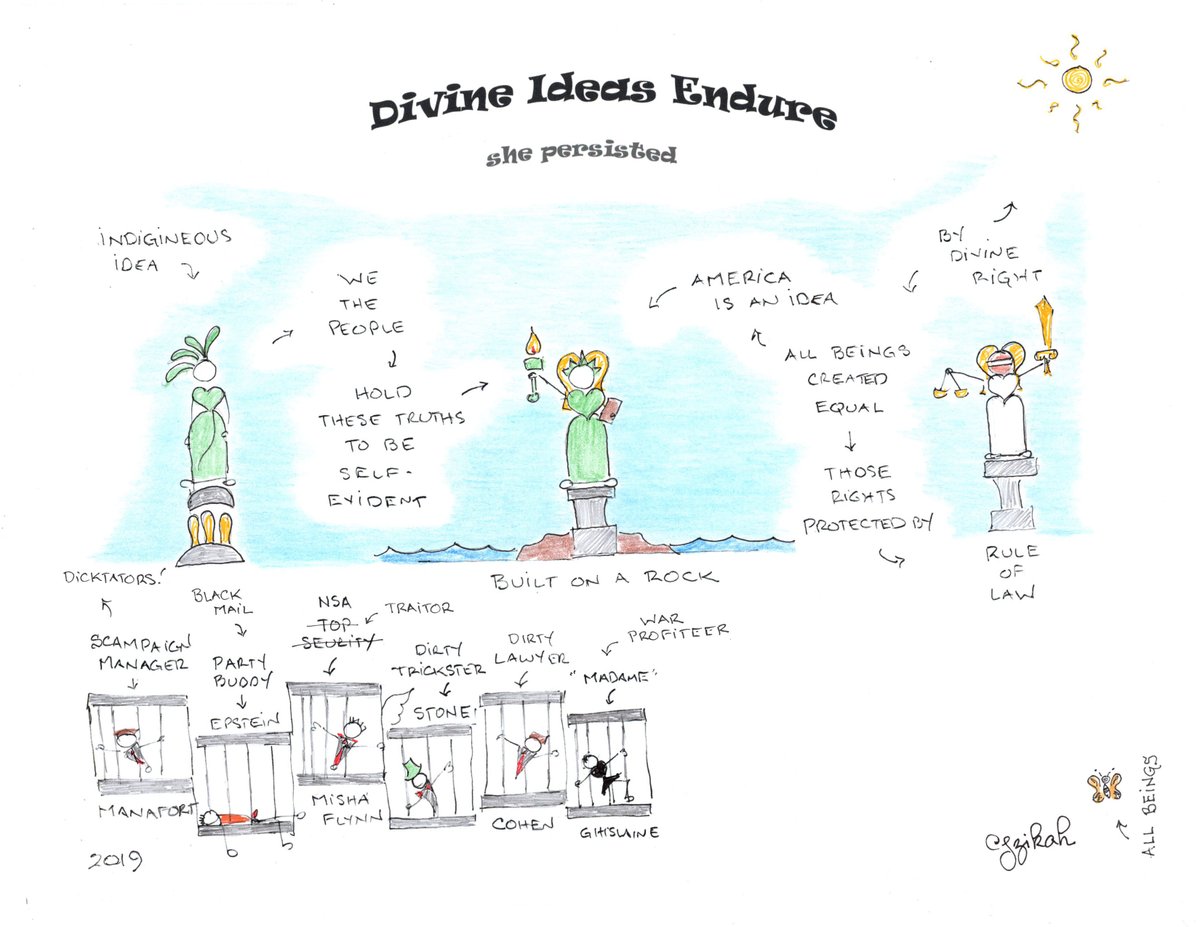 Divine Ideas Endure
she persisted
INDIGINEOUS
IDEA
WE
THE
PEOPLE
HOLD
THESE TRUTHS
TO BE
SELF-
EVIDENT
AMERICA
IS AN IDEA
BY
DIVINE
RIGHT
ALL BEINGS
CREATED
EQUAL
THOSE
RIGHTS
PROTECTED BY
RULE
OF
LAW
BUILT ON A ROCK
DICKTATORS!
SCAMPAIGN
MANAGER
MANAFORT
BLACK
MAIL
PARTY
BUDDY
EPSTEIN
NSA
TOP
SEURITY
TRAITOR
MISHA
FLYNN
DIRTY
TRICKSTER
STONE
DIRTY
LAWYER
COHEN
WAR
PROFITEER
"MADAME"
GHISLAINE
2019
cgzikah
ALL BEINGS